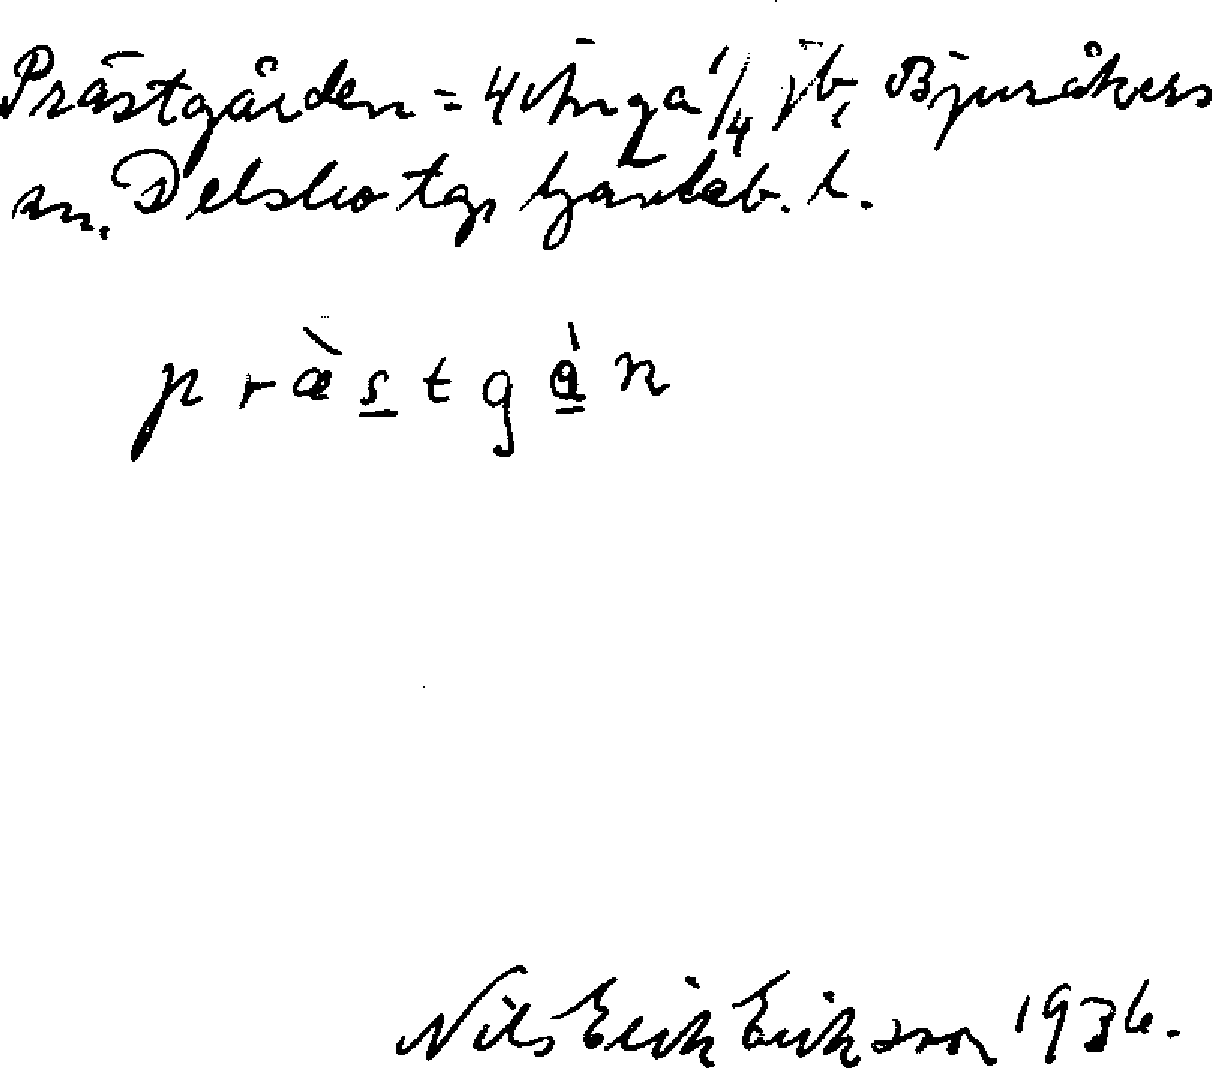 Prästgården = 4 Änga 1/4 jb, Bjuråkers
sn. Delsbo tg, Gävleb. l.
præstgån
Nils Erik Eriksson 1936.